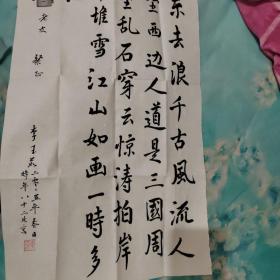 东去浪千古風流人
垒西边人道是三國周
乱石穿云惊涛拍岸
堆雪江山如画一時多
二零一五年春日
時年八十二